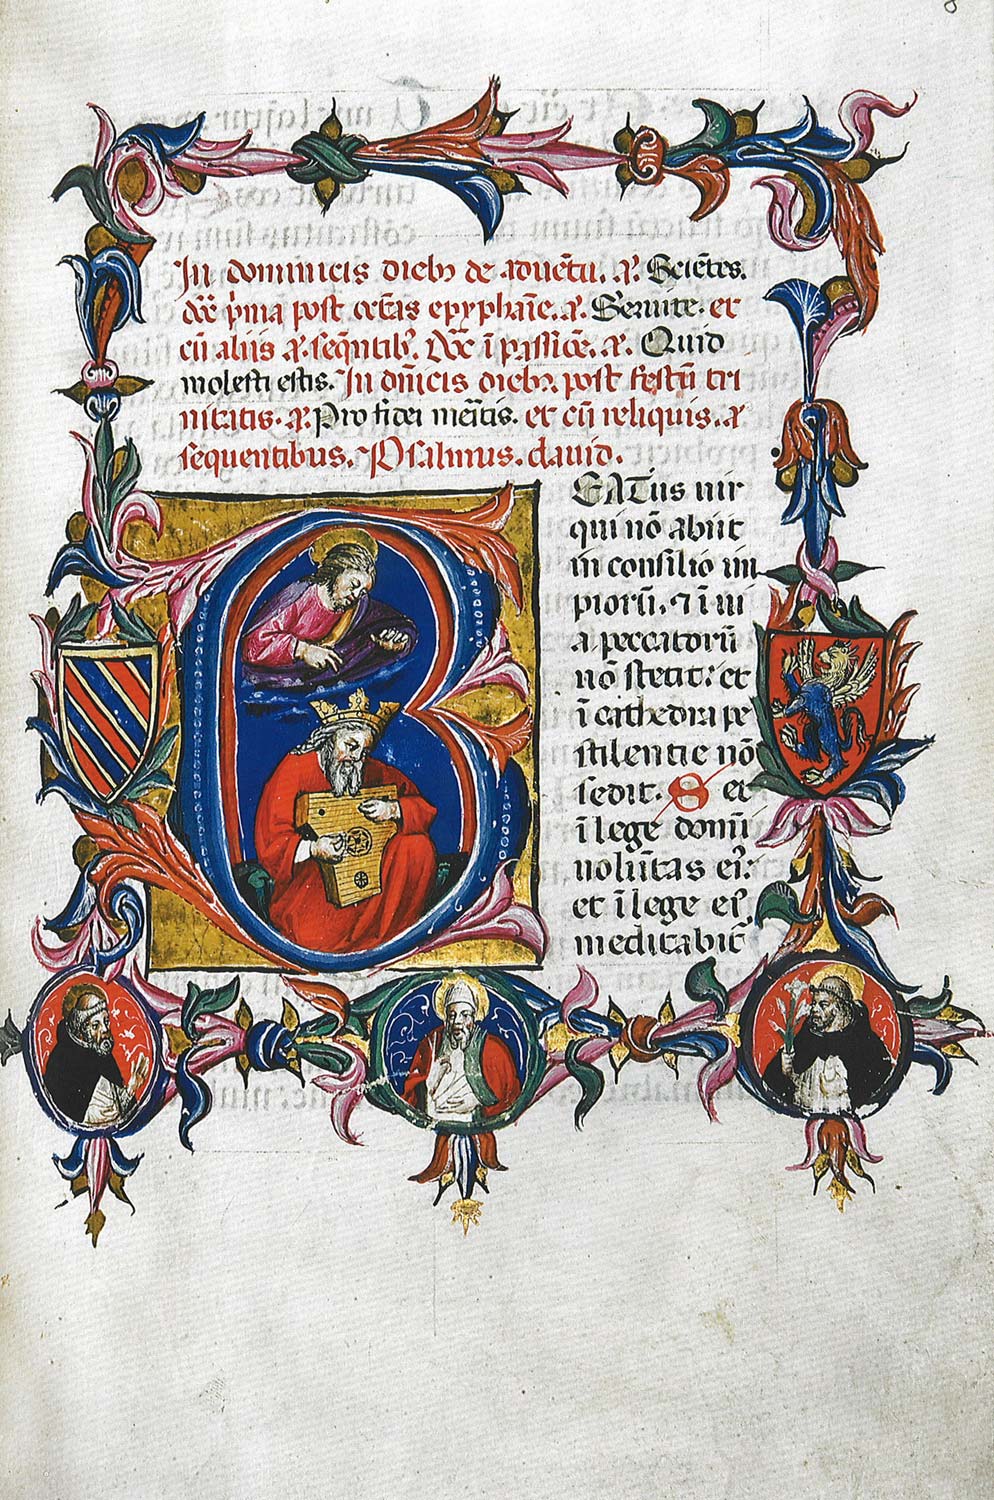 In dominicis dieb᷒ de aduētu. a᷒. Sciētes.
dōc p̄ma post octās epyphaīe. a᷒. Seruite. et
cū aliis a᷒. seq̄ntib᷒. Dōc ī passiōe. a᷒. Quid
molesti estis. In dn̄icis dieb᷒. post festū tri
nitatis. a᷒. Pro fidei meītis. et cū reliquis. a᷒
sequentibus. Psalmus. dauid.
BEATus uir
qui nō abiit
in consilio im
piorū. ⁊ ī ui
a peccatorū
nō stetit: et
ī cathedra pe
stilentie nō
sedit. S et
ī lege domī
uolūtas ei᷒:
et ī lege ei᷒
meditabit᷑